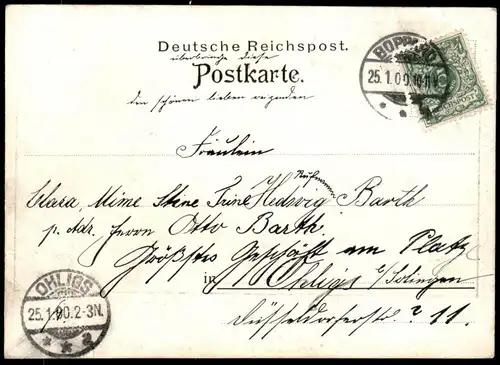 Deutsche Reichspost.
überbringe diese
Postkarte.
den schönen lieben reizenden
BOPPARD
25.1.00.10-11V.
REICHSPOST
Fräulein
Clara, Mime Stine Trine Hedwig Barth
p. Adr. Herrn Otto Barth.
Größtes Geschäft am Platz
in Ohligs b/Solingen
Düsseldorferstr. ? 11.
OHLIGS
25.1.00.2-3N.